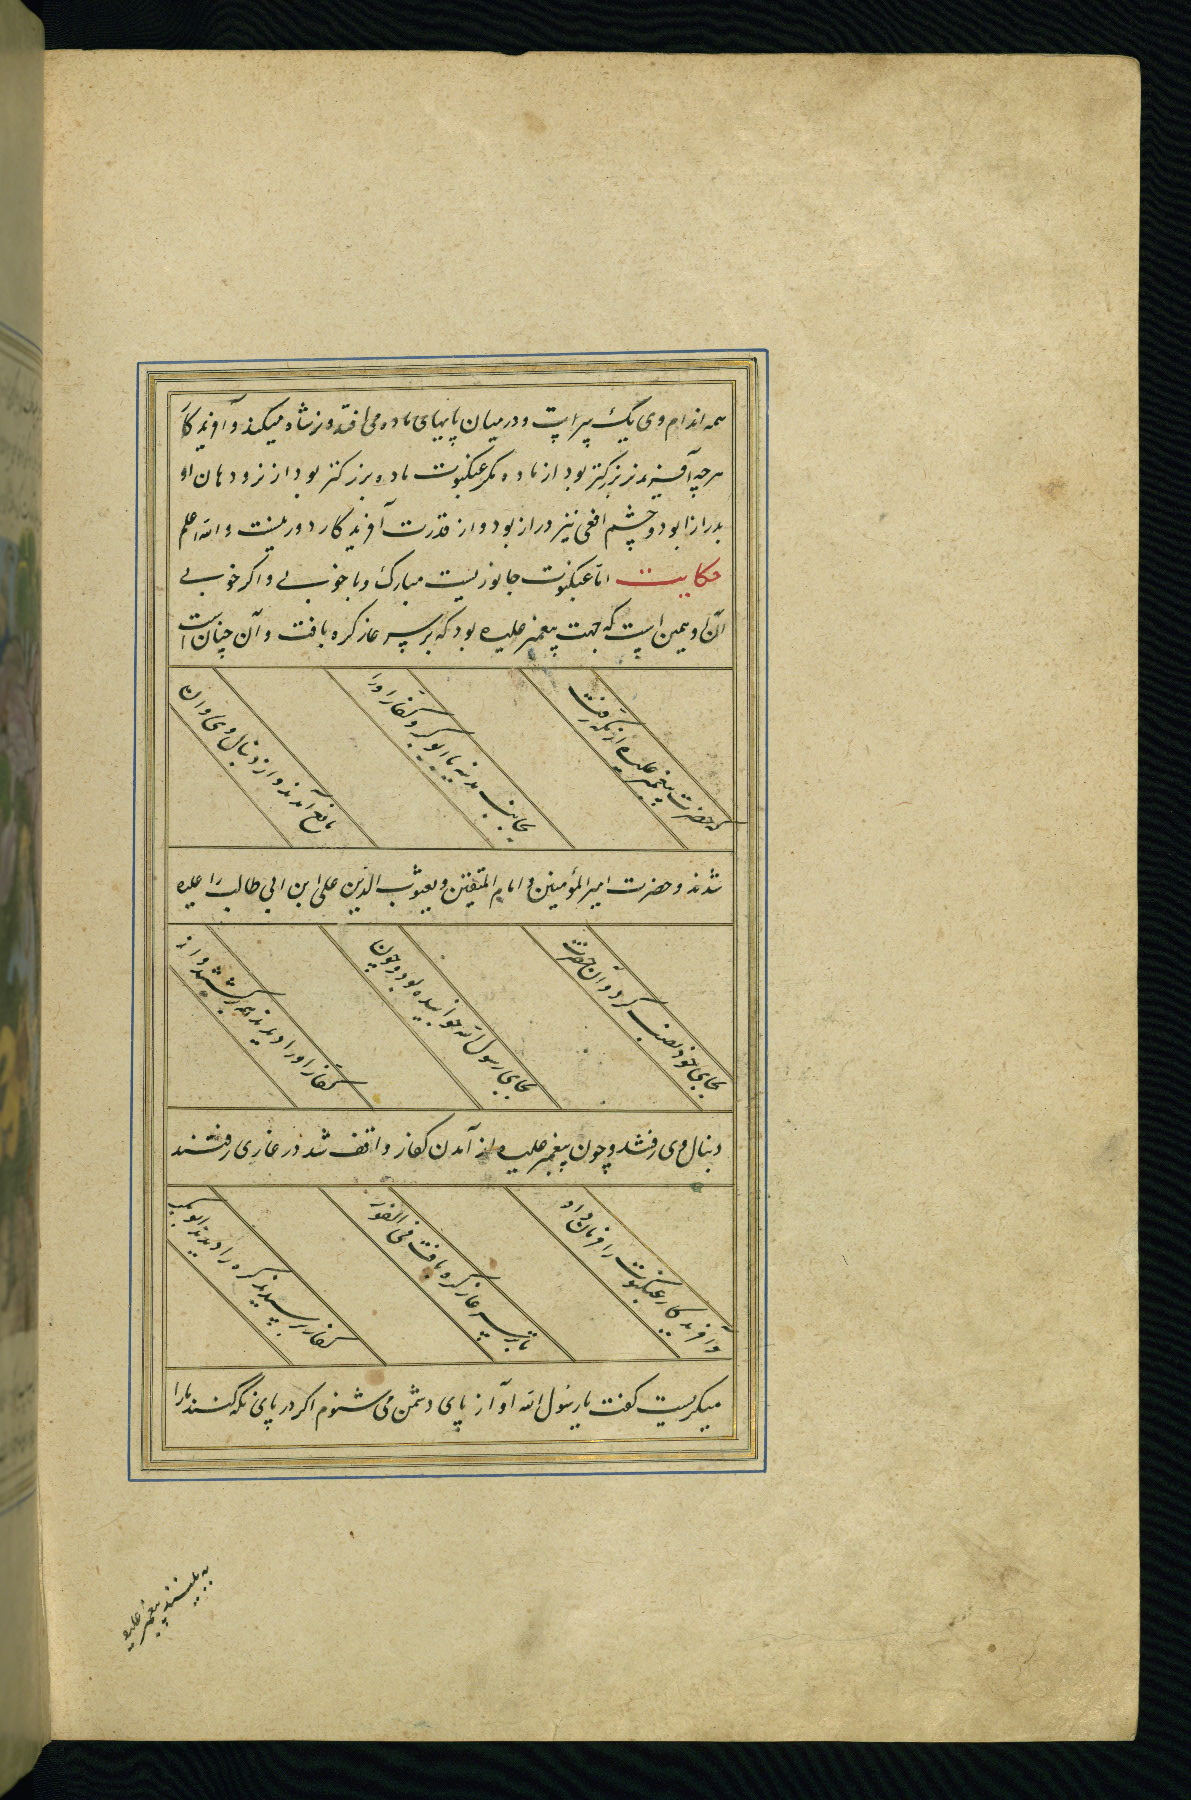 همه اندام وی یک سراست و در میان پایهای ماده می افتد و نر نشاه میکند و آفریدکار
هر چه آفرید نر بزرکتر بود از ماده مکر عنکبوت ماده بزرکتر بود از نر و دهان او
بدرازا بود و چشم افعی نیز دراز بود و از قدرت آفریدکار دور نیست والله اعلم
حکایت اما عنکبوت جانوریست مبارک و با خوبی و اکر خوبی
آن او همین است که جهت پیغمبر علیه بود که بر سر غار کره بافت و آن چنان است
که حضرت پیغمبر علیه از مکه برفت
بجانب مدینه با ابوبکر و کفار او را
مانع آمدند و از دنبال وی روان
شدند و حضرت امیرالمؤمنین و امام المتقین و یعسوب الدین علی ابن ابی طالب را علیه
بجای خود نصب کرد و آن حضرت
بجای رسول الله خوابیده بود و چون
کفار او را دیدند همه برکشتند و از
دنبال وی رفتند و چون پیغمبر علیه از آمدن کفار واقف شد در غاری رفتند
و آفریدکار عنکبوت را فرمان داد
تا بر سر غار کره بافت فی الفور
کفار برسیدند کره را دیدند ابوبکر
میکریست کفت یا رسول الله آواز پای دشمن می شنوم اکر در پای نکه کنند ما را
به بینند پیغمبر علیه